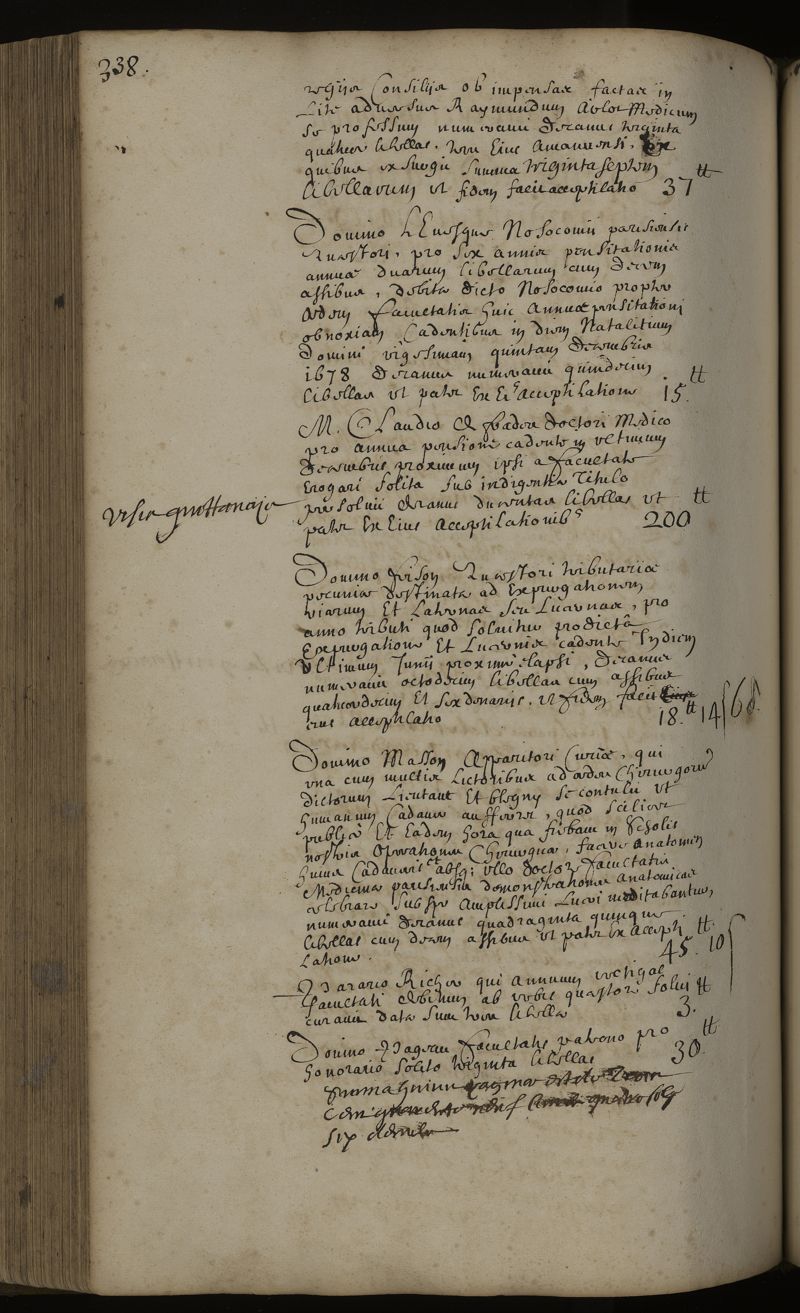 338.
regijs Consilijs ob impensas factas in
Lite adversus Raymundum Medicum
se professum numeravit Decanus triginta
quatuor libellas. tres Eius Amanuensi. Ex
quibus exsurgit summa triginta septem
libellarum ut fidem facit acceptilatio 37 ₶
Domino L'Evesque Nosocomii parisiensis
Quaestori, pro sex annis pensitationis
annuae duarum libellarum cum decem
assibus, debitae dicto Nosocomio propter
Aedem facultatis huic Annuae pensitationi
obnoxiam Cadentibus in diem Natalitium
Domini vigesimam quintam decembris
1678 Decanus numeravit quindecim
libellas ut patet Ex Eius acceptilatione 15. ₶
M. Claudio Doctori Medico
pro annua pensione cadente in ultimum
decembris proximum ipsi a facultate
Erogari solita sub indigentis Titulo
persolvit decanus ducentas libellas ut
patet Ex Eius acceptilationibus 200 ₶
visis quittancijs
Domino Quaestori tributariae
pecuniae destinatae ad Expurgationem
viarum Et Laternas seu Lucernas, pro
anno tributi quod solvitur pro dicta
Expurgatione Et Lucernis cadente In diem
Ultimum Junij proxime elapsi, Decanus
numeravit octodecim libellas cum assibus
quatuordecim Et sex denarijs. ut fidem facit
eius acceptilatio 18. ₶ 14 s 6 d.
Domino Masson Apparitori Curiae, qui
una cum multis Lictoribus ad aedes Chirurgorum
dictorum Lieutaut Et blegny se contulit ut
humanum Cadaver auferret, quod scilicet
publice Et Eadem hora qua fiebant in scholis
nostris operationes Chirurgicae, facere anatomen
humani Cadaveris absque ullo doctore facultatis
Medicinae parisiensis demonstrationes anatomicas
celebrare sub spe Amplissimi Lucri meditabantur,
numeravit decanus quadraginta quinque
libellas cum decem assibus ut patet ex accepti-
latione. 45. ₶ 10 s
Richer qui annuum vectigal
facultati debitum ab urbis quaestore solvi
curavit datae sunt tres libellae 3. ₶
Domino facultatis patrono pro
honorario solito triginta libellas 30. ₶
summa huius paginae
Cent
six deniers